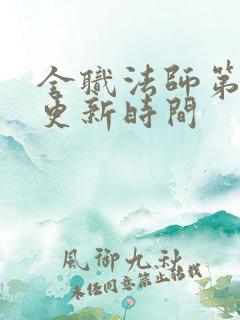 全職法師第
更新時間
風御九秋
未经同意禁止转载